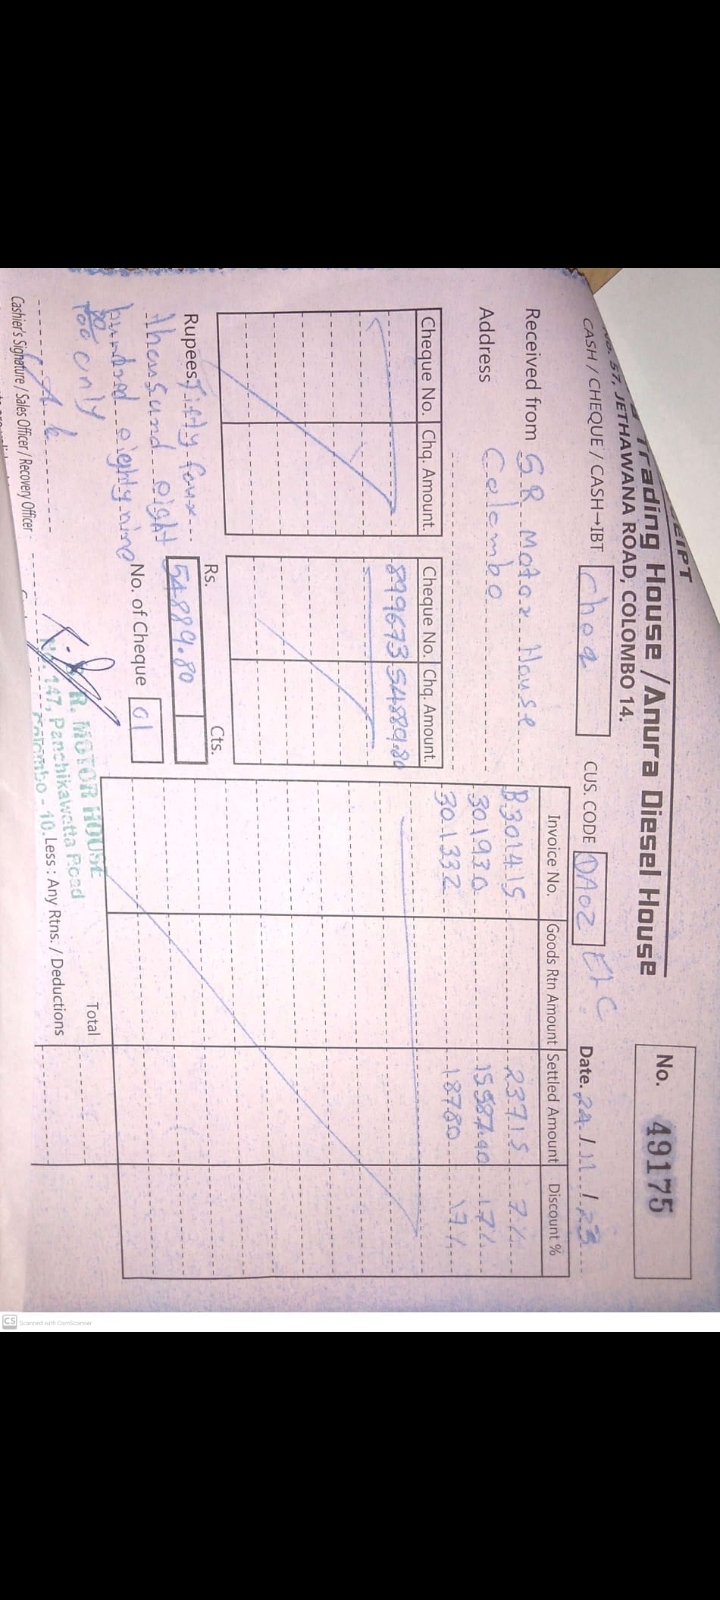 EIPT
Trading House / Anura Diesel House
No. 57, JETHAWANA ROAD, COLOMBO 14.
No. 49175
CASH / CHEQUE / CASH→IBT Choq CUS. CODE DA02 Date. 24 / 11 / 23
Received from SR Motor House
Address Colombo
Cheque No. Chq. Amount. Cheque No. Chq. Amount.
899673 54889.80
Invoice No. Goods Rtn Amount Settled Amount Discount %
B301415 23715 7%
301930 15587.40 17%
301332 18780 17%
Rs. Cts.
Rupees. Fifty four
thousand eight
hundred eighty nine
only
54889.80
No. of Cheque 01
Total
Less : Any Rtns. / Deductions
R. MOTOR HOUSE
No. 147, Panchikawatta Road
Colombo - 10.
Cashier's Signature / Sales Officer / Recovery Officer
CS Scanned with CamScanner